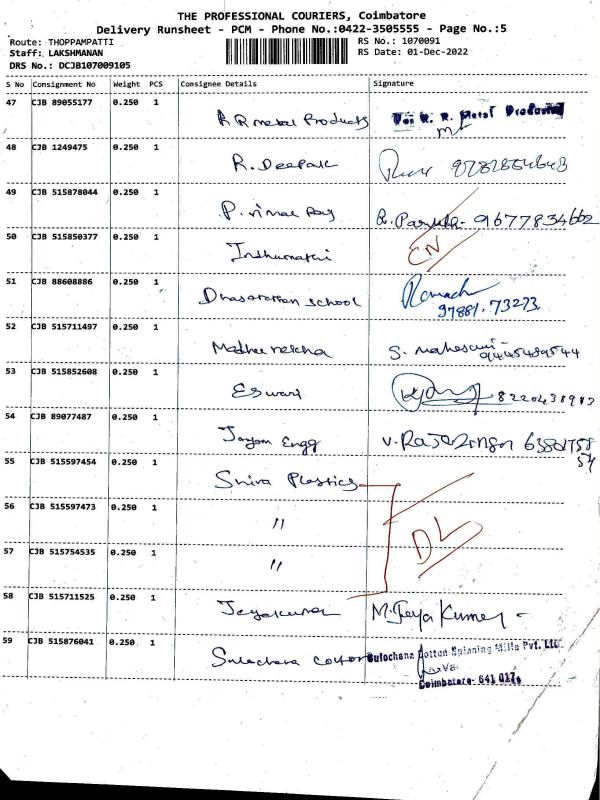 THE PROFESSIONAL COURIERS, Coimbatore
Delivery Runsheet - PCM - Phone No.:0422-3505555 - Page No.:5
Route: THOPPAMPATTI RS No.: 1070091
Staff: LAKSHMANAN RS Date: 01-Dec-2022
DRS No.: DCJB107009105
S No Consignment No Weight PCS Consignee Details Signature
47 CJB 89055177 0.250 1 R R metal Products For R. R. Metal Products
48 CJB 1249475 0.250 1 R. Deepak
49 CJB 515878044 0.250 1 P. vimal Raj 9677834662
50 CJB 515850377 0.250 1 Indhumathi CN
51 CJB 88608886 0.250 1 Dhasarathan school
97881.73273
52 CJB 515711497 0.250 1 S. maheswari
9445489544
53 CJB 515852608 0.250 1 Eswari
54 CJB 89077487 0.250 1 Jayam Engg
55 CJB 515597454 0.250 1 Shiva Plastics
56 CJB 515597473 0.250 1 "
DL
57 CJB 515754535 0.250 1 "
58 CJB 515711525 0.250 1 Jeyakumar M. Jeya Kumar
59 CJB 515876041 0.250 1 Sulochana cotton Sulochana Cotton Spinning Mills Pvt. Ltd.
Coimbatore - 641 017.